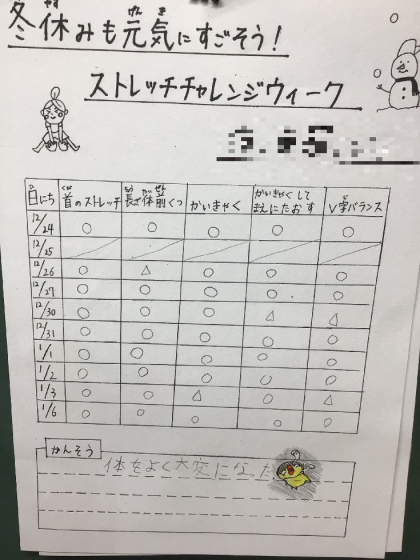 冬休みも元気にすごそう!
ストレッチチャレンジウィーク
日にち 首のストレッチ 長ざ体前くつ かいきゃく かいきゃくして まえにたおす V字バランス
12/24 ○ ○ ○ ○ ○
12/25
12/26 ○ △ ○ ○ ○
12/27 ○ ○ ○ ○ ○
12/30 ○ ○ ○ △ △
12/31 ○ ○ ○ ○ ○
1/1 ○ ○ ○ ○ ○
1/2 ○ ○ ○ ○ ○
1/3 ○ ○ △ ○ △
1/6 ○ ○ ○ ○ ○
かんそう
体をよく大変になった